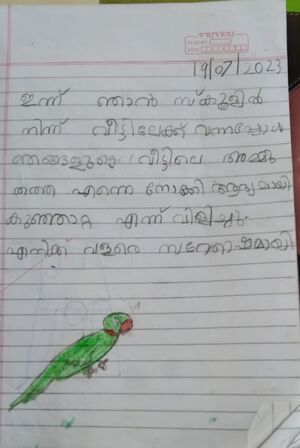 TRIVENI
19/07/2023
ഇന്ന് ഞാൻ സ്കൂളിൽ
നിന്ന് വീട്ടിലേക്ക് വന്നപ്പോൾ
ഞങ്ങളുടെ വീട്ടിലെ അമ്മു
തത്ത എന്നെ നോക്കി ആദ്യമായി
കുഞ്ഞാറ്റ എന്ന് വിളിച്ചു.
എനിക്ക് വളരെ സന്തോഷമായി